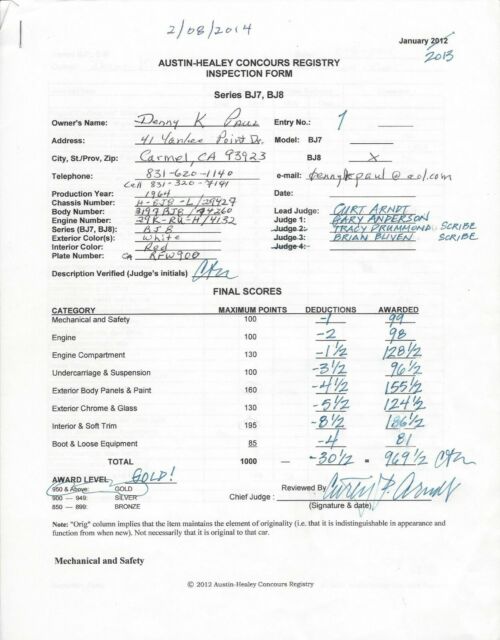 2/08/2014
January 2012
2013
AUSTIN-HEALEY CONCOURS REGISTRY
INSPECTION FORM
Series BJ7, BJ8
Owner's Name: Denny K Paul Entry No.: 1
Address: 41 Yankee Point Dr. Model: BJ7
City, St./Prov, Zip: Carmel, CA 93923 BJ8 X
Telephone: 831-620-1140 e-mail: dennykpaul@aol.com
Cell 831-320-7191
Production Year: 1964 Date:
Chassis Number: H-BJ8-L/29429 Lead Judge: CURT ARNDT
Body Number: Judge 1: GARY ANDERSON
Engine Number: 29K-RU-H/4132 Judge 2: TRACY DRUMMOND SCRIBE
Series (BJ7, BJ8): BJ8 Judge 3: BRIAN BLIVEN SCRIBE
Exterior Color(s): White Judge 4:
Interior Color: Red
Plate Number: CA RFW900
Description Verified (Judge's initials) CTA
FINAL SCORES
CATEGORY MAXIMUM POINTS DEDUCTIONS AWARDED
Mechanical and Safety 100 -1 99
Engine 100 -2 98
Engine Compartment 130 -1 1/2 128 1/2
Undercarriage & Suspension 100 -3 1/2 96 1/2
Exterior Body Panels & Paint 160 -4 1/2 155 1/2
Exterior Chrome & Glass 130 -5 1/2 124 1/2
Interior & Soft Trim 195 -8 1/2 186 1/2
Boot & Loose Equipment 85 -4 81
TOTAL 1000 — -30 1/2 = 969 1/2 CTA
AWARD LEVEL: GOLD!
950 & Above: GOLD
900 — 949: SILVER
850 — 899: BRONZE
Chief Judge : Reviewed By: Curtis P. Arndt
(Signature & date)
Note: "Orig" column implies that the item maintains the element of originality (i.e. that it is indistinguishable in appearance and
function from when new). Not necessarily that it is original to that car.
Mechanical and Safety
© 2012 Austin-Healey Concours Registry